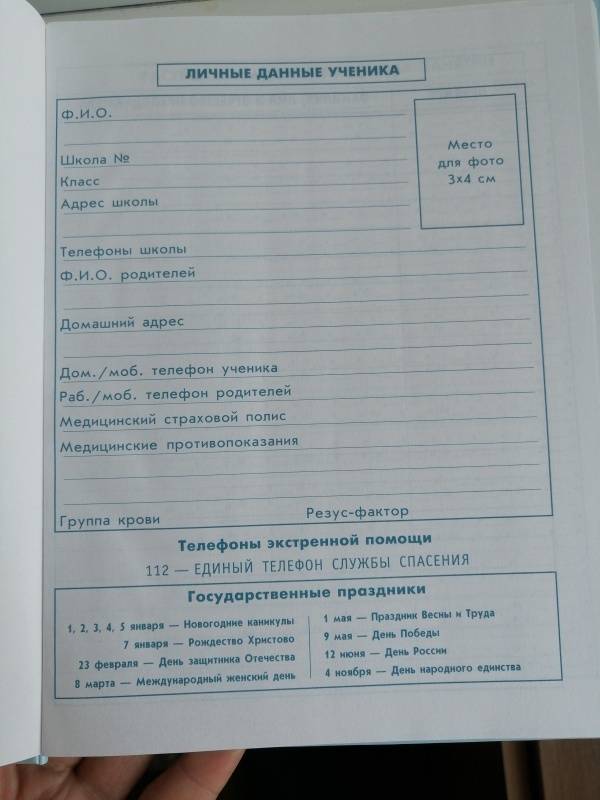 ЛИЧНЫЕ ДАННЫЕ УЧЕНИКА
Ф.И.О.
Место
для фото
3х4 см
Школа №
Класс
Адрес школы
Телефоны школы
Ф.И.О. родителей
Домашний адрес
Дом./моб. телефон ученика
Раб./моб. телефон родителей
Медицинский страховой полис
Медицинские противопоказания
Группа крови Резус-фактор
Телефоны экстренной помощи
112 — ЕДИНЫЙ ТЕЛЕФОН СЛУЖБЫ СПАСЕНИЯ
Государственные праздники
1, 2, 3, 4, 5 января — Новогодние каникулы
7 января — Рождество Христово
23 февраля — День защитника Отечества
8 марта — Международный женский день
1 мая — Праздник Весны и Труда
9 мая — День Победы
12 июня — День России
4 ноября — День народного единства